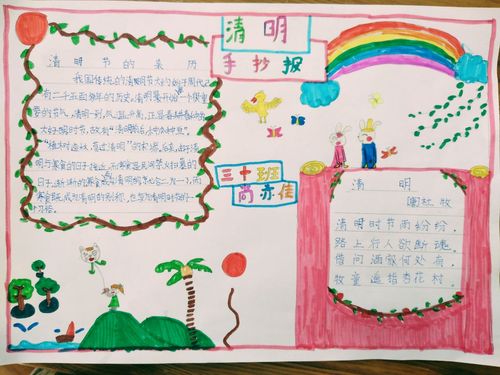 清明
手抄报
清明节的来历
我国传统的清明节大约始于周代,已
有二千五百余年的历史,清明最开始一个很重
要的节气,清明一到,气温升高,正是春耕春种的
大好时节,故有"清明前后,种瓜种豆"。
"植树造林,莫过清明"的农谚。后来,由于清
明与寒食的日子接近,而寒食是民间禁火扫墓的
日子,渐渐的寒食与清明就合二为一了,而
寒食既成为清明的别称,也变为清明时节的一
个习俗。
三十班
尚亦佳
清明
杜牧
清明时节雨纷纷,
路上行人欲断魂。
借问酒家何处有,
牧童遥指杏花村。